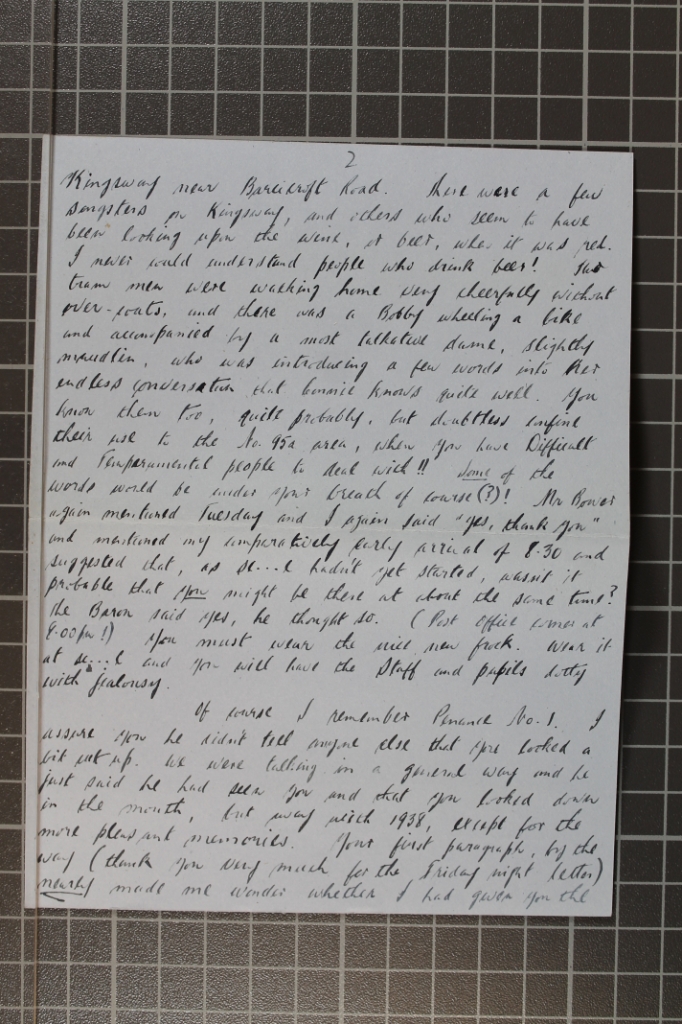 2
Kingsway near Barlicroft Road. There were a few
songsters on Kingsway, and others who seem to have
been looking upon the wine, or beer, when it was red.
I never could understand people who drink beer! Two
tram men were walking home very cheerfully without
over-coats, and there was a Bobby wheeling a bike
and accompanied by a most talkative dame, slightly
maudlin, who was introducing a few words into her
endless conversation that Connie knows quite well. You
know them too, quite probably, but doubtless confine
their use to the No. 95a area, when you have Difficult
and Temperamental people to deal with!! Some of the
words would be under your breath of course (?)! Mr Bower
again mentioned Tuesday and I again said "Yes, thank you"
and mentioned my comparatively early arrival of 8.30 and
suggested that, as sc...l hadn't yet started, wasn't it
probable that you might be there at about the same time?
The Baron said yes, he thought so. (Post Office comes at
8.00pm!) You must wear the nice new frock. Wear it
at sc...l and you will have the Staff and pupils dotty
with jealousy.
Of course I remember Penance No. 1. I
assure you he didn't tell anyone else that you looked a
bit cut up. We were talking in a general way and he
just said he had seen you and that you looked down
in the mouth, but away with 1938, except for the
more pleasant memories. Your first paragraph, by the
way (thank you very much for the Friday night letter)
nearly made me wonder whether I had given you the